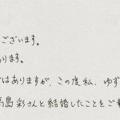 ございます。
あります。
ではありますが、この度私、ゆず
高島彩さんと結婚したことをご報